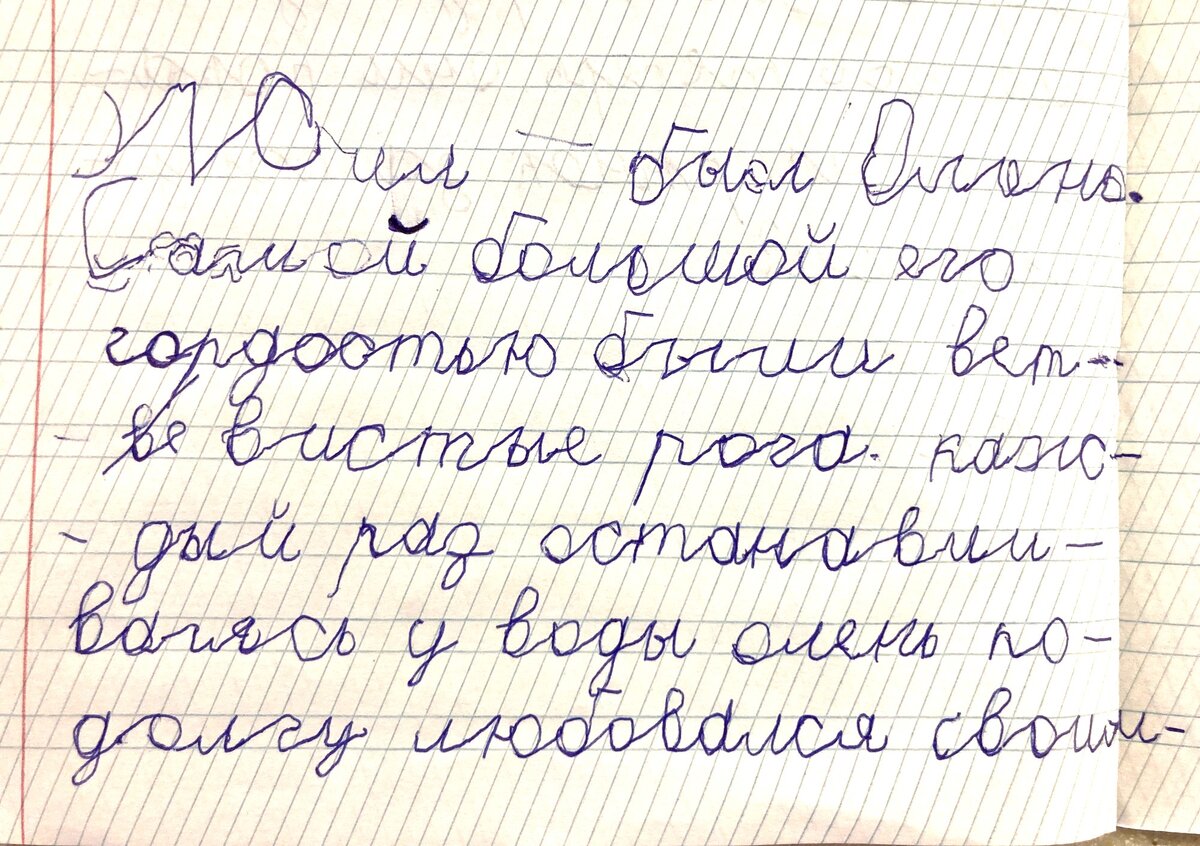 Жил – был Олень.
Самой большой его
гордостью были вет-
- ве вистые рога. каж-
- дый раз останавли-
ваясь у воды олень по-
долгу любовался своим-